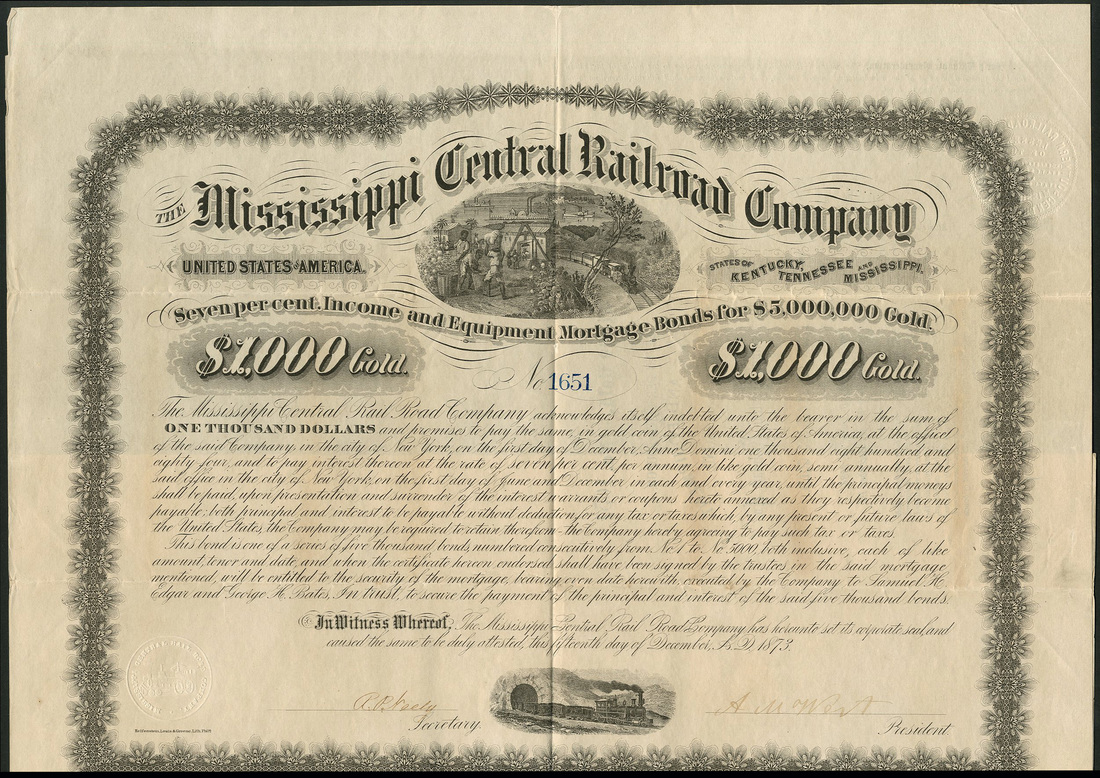 THE Mississippi Central Railroad Company
UNITED STATES OF AMERICA.
STATES OF KENTUCKY, TENNESSEE AND MISSISSIPPI.
Seven per-cent. Income and Equipment Mortgage Bonds for $5,000,000 Gold.
$1,000 Gold.
$1,000 Gold.
No 1651
The Mississippi Central Rail Road Company acknowledges itself indebted unto the bearer in the sum of
ONE THOUSAND DOLLARS and promises to pay the same, in gold coin of the United States of America, at the office
of the said Company, in the city of New York, on the first day of December, Anno Domini one thousand eight hundred and
eighty four, and to pay interest thereon at the rate of seven per cent, per annum, in like gold coin, semi annually, at the
said office in the city of New York, on the first day of June and December in each and every year, until the principal moneys
shall be paid, upon presentation and surrender of the interest warrants or coupons hereto annexed as they respectively become
payable: both principal and interest to be payable without deduction for any tax or taxes which, by any present or future laws of
the United States, the Company may be required to retain therefrom the Company hereby agreeing to pay such tax or taxes.
This bond is one of a series of five thousand bonds, numbered consecutively from No 1 to No 5000, both inclusive, each of like
amount, tenor and date, and when the certificate hereon endorsed shall have been signed by the trustees in the said mortgage
mentioned, will be entitled to the security of the mortgage, bearing even date herewith, executed by the Company to Samuel H.
Edgar and George H. Bates, In trust, to secure the payment of the principal and interest of the said five thousand bonds.
In Witness Whereof, The Mississippi Central Rail Road Company has hereunto set its corporate seal, and
caused the same to be duly attested, this fifteenth day of December, A.D. 1873.
Secretary.
President.